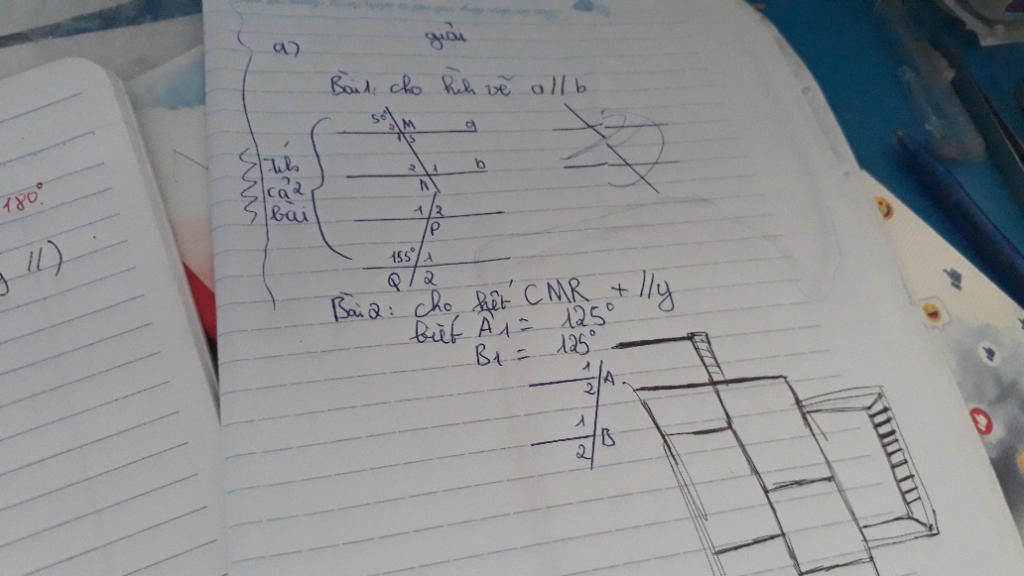 giải
a)
Bài 1: cho hình vẽ a//b
5°
M
a
2
1
b
N
1 2
P
155° 1
Q 2
cả 2
bài
180°
//)
Bài 2: cho biết CMR + //y
biết A1 = 125°
B1 = 125°
1
2 A
1
2 B